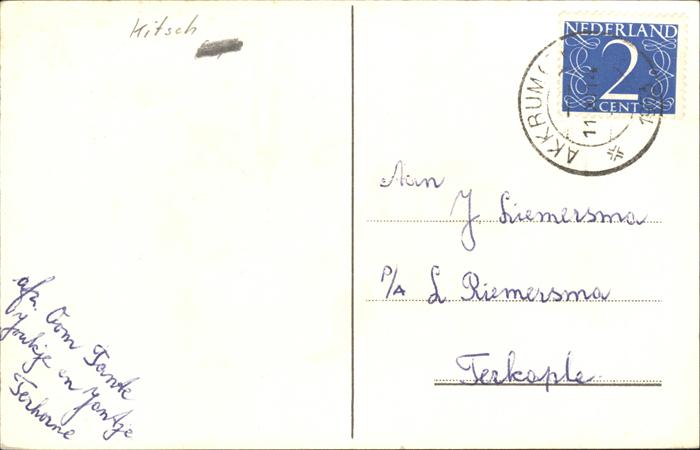 Kitsch
NEDERLAND
2
CENT
AKKRUM
11
Aan
J. Riemersma
P/A L Riemersma
Terkaple
afz. Oom Tante
Joukje en Jantje
Terhorne